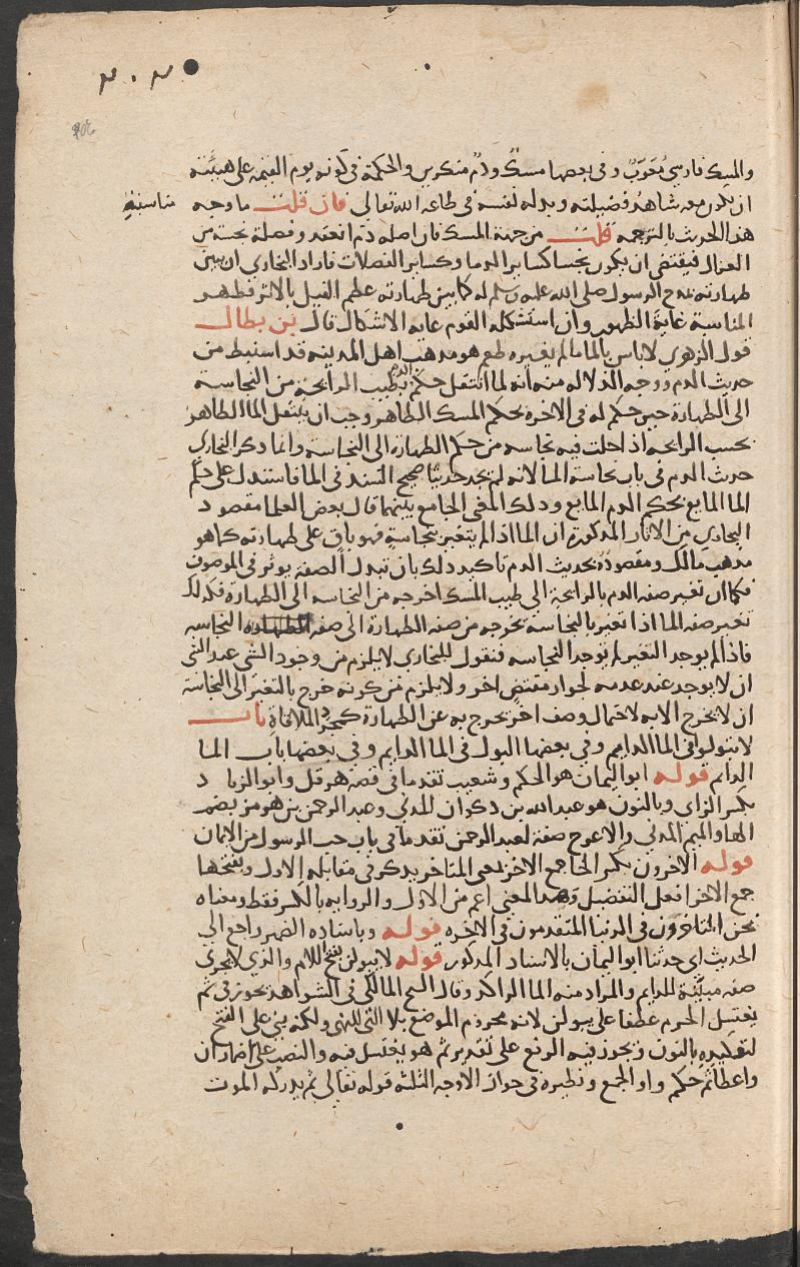 والمسك فارسي معرب وفي بعضها مسك ودم منكرين والحكمة في كونه يوم القيمة على هيئته
ان يكون معه شاهد فضيلته وبذله نفسه في طاعة الله تعالى فان قلت ما وجه مناسبة
هذا الحديث بالترجمة قلت من جهة المسك فان اصله دم انعقد وفضلة نجسة من
الغزال فيقتضي ان يكون نجسا كساير الدما وكساير الفضلات فاراد البخاري ان يبين
طهارته بمدح الرسول صلى الله عليه وسلم له كما بين طهارته عظم الفيل بالاثر فظهر
المناسبة غاية الظهور وان استشكله القوم غاية الاشكال قال بن بطال
قول الزهري لا باس بالما ما لم يغيره طعم هو مذهب اهل المدينه قد استنبط من
حديث الدم ووجه الدلالة منه أنه لما انتقل حكم الدم بطيب الرايحة من النجاسة
الى الطهارة حين حكم له في الاخرة بحكم المسك الطاهر وجب ان ينتقل الما الطاهر
بحسب الرايحة اذا حلت فيه نجاسة من حكم الطهارة الى النجاسة وانما ذكر البخاري
حديث الدم في باب نجاسة الما لانه لم يجد حديثا صحيح السند في الما فاستدل على حكم
الما المايع بحكم الدم المايع وذلك المعنى الجامع بينهما قال بعض العلما مقصود
البخاري من الاثار المذكورة ان الما اذا لم يتغير بنجاسة فهو باق على طهارته كما هو
مذهب مالك ومقصوده بحديث الدم تاكيد ذلك بان تبدل الصفة يوثر في الموصوف
فكما ان تغير صفه الدم بالرايحة الى طيب المسك اخرجه من النجاسه الى الطهارة فكذلك
تغير صفه الما اذا تغير بالنجاسه يخرجه من صفه الطهارة الى صفه النجاسه
فاذا لم يوجد التغير لم توجد النجاسه فنقول للبخاري لا يلزم من وجود الشي عند الشي
ان لا يوجد عند عدمه لجواز مقتض اخر ولا يلزم من كونه خرج بالتغير الى النجاسة
ان لا يخرج الا به لاحتمال وصف اخر يخرج به عن الطهارة كمجرد الملاقاة باب
لا تبولوا في الما الدايم وفي بعضها البول في الما الدايم وفي بعضها باب الما
الدايم قوله ابو اليمان هو الحكم وشعيب تقدما في قصة هرقل وابو الزناد
بكسر الزاي وبالنون هو عبد الله بن ذكوان المدني وعبد الرحمن بن هرمز بضم
الها والميم المدني والاعرج صفة لعبد الرحمن تقدما في باب حب الرسول من الايمان
قوله الاخرون بكسر الخا جمع الاخر بمعى المتاخر يذكر في مقابلة الاول وبفتحها
جمع الاخر افعل التفضيل وهذا المعنى اعم من الاول والرواية بالكسر فقط ومعناه
نحن المتاخرون في الدنيا المتقدمون في الاخرة قوله وباسناده الضمير راجع الى
الحديث اي حدثنا ابو اليمان بالاسناد المذكور قوله لا يبولن بفتح اللام والذي لا يجري
صفه مبينة للدايم والمراد منه الما الراكد وقال الشيخ المالكي في الشواهد يجوز في ثم
يغتسل الجزم عطفا على يبولن لانه مجزوم الموضع بلا التي للنهي ولكنه بني على الفتح
لتوكيده بالنون ويجوز فيه الرفع على تقدير ثم هو يغتسل فيه والنصب على اضمار ان
واعطا ثم حكم واو الجمع ونظيره في جواز الاوجه الثلثه قوله تعالى ثم يدركه الموت